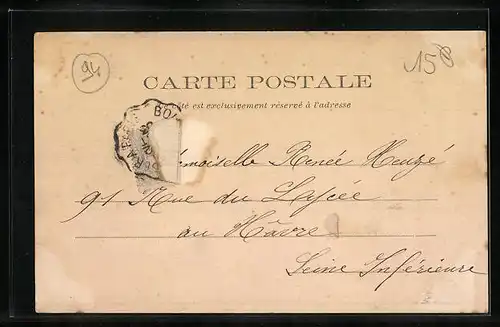 91
15
CARTE POSTALE
té est exclusivement réservé à l'adresse
BO
emoiselle Renée Heuzé
91 Rue du Lycée
au Hâvre
Seine Inférieure